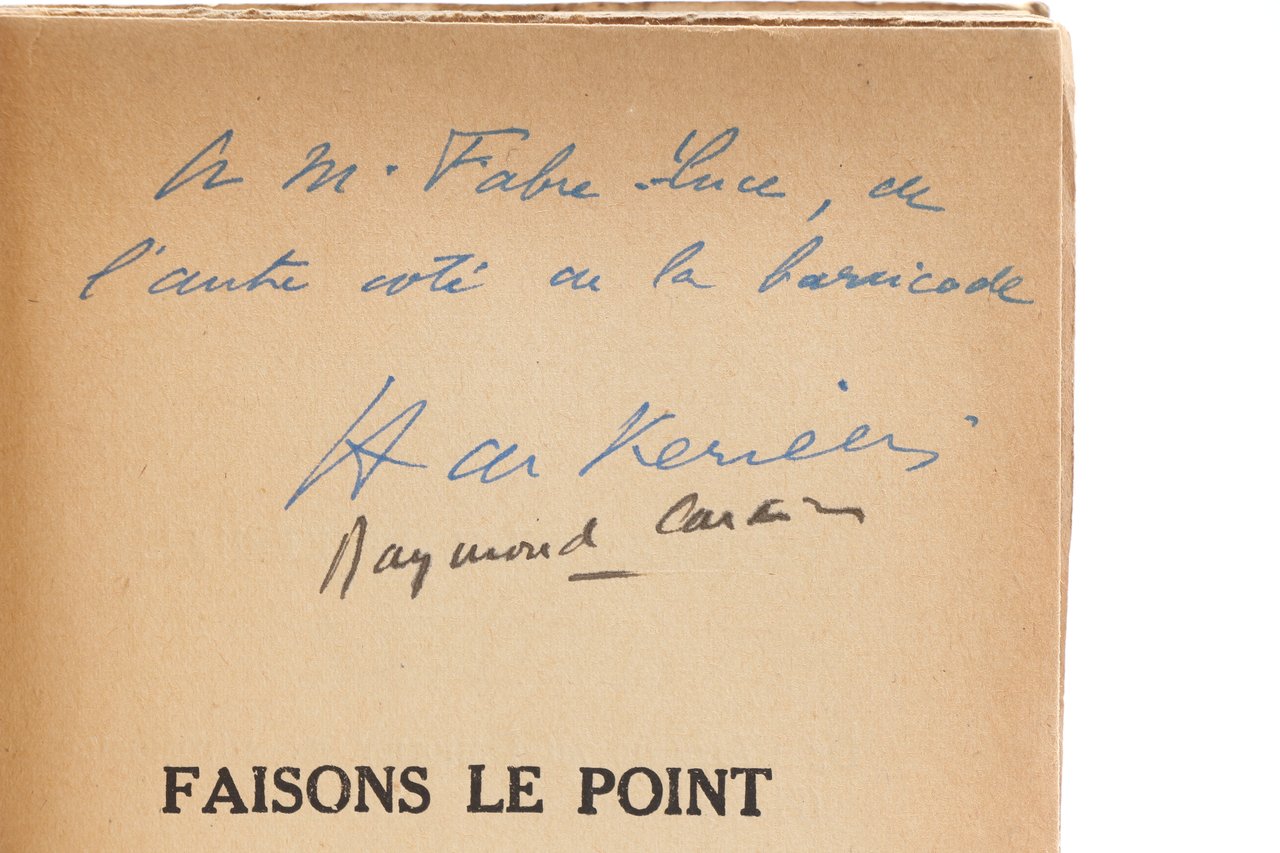 A M. Fabre-Luce, de
l'autre coté de la barricade
H de Kerillis
Raymond Cartier
FAISONS LE POINT